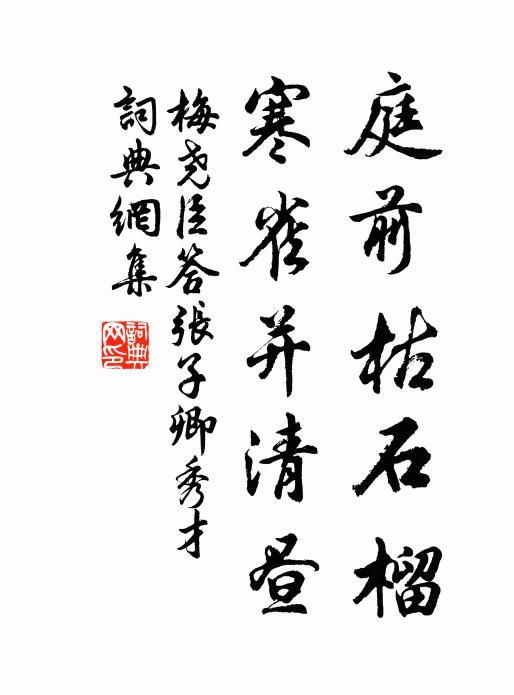 庭前枯石榴
寒雀并清昼
梅尧臣答張子卿秀才
詞典網集
詞典
网印